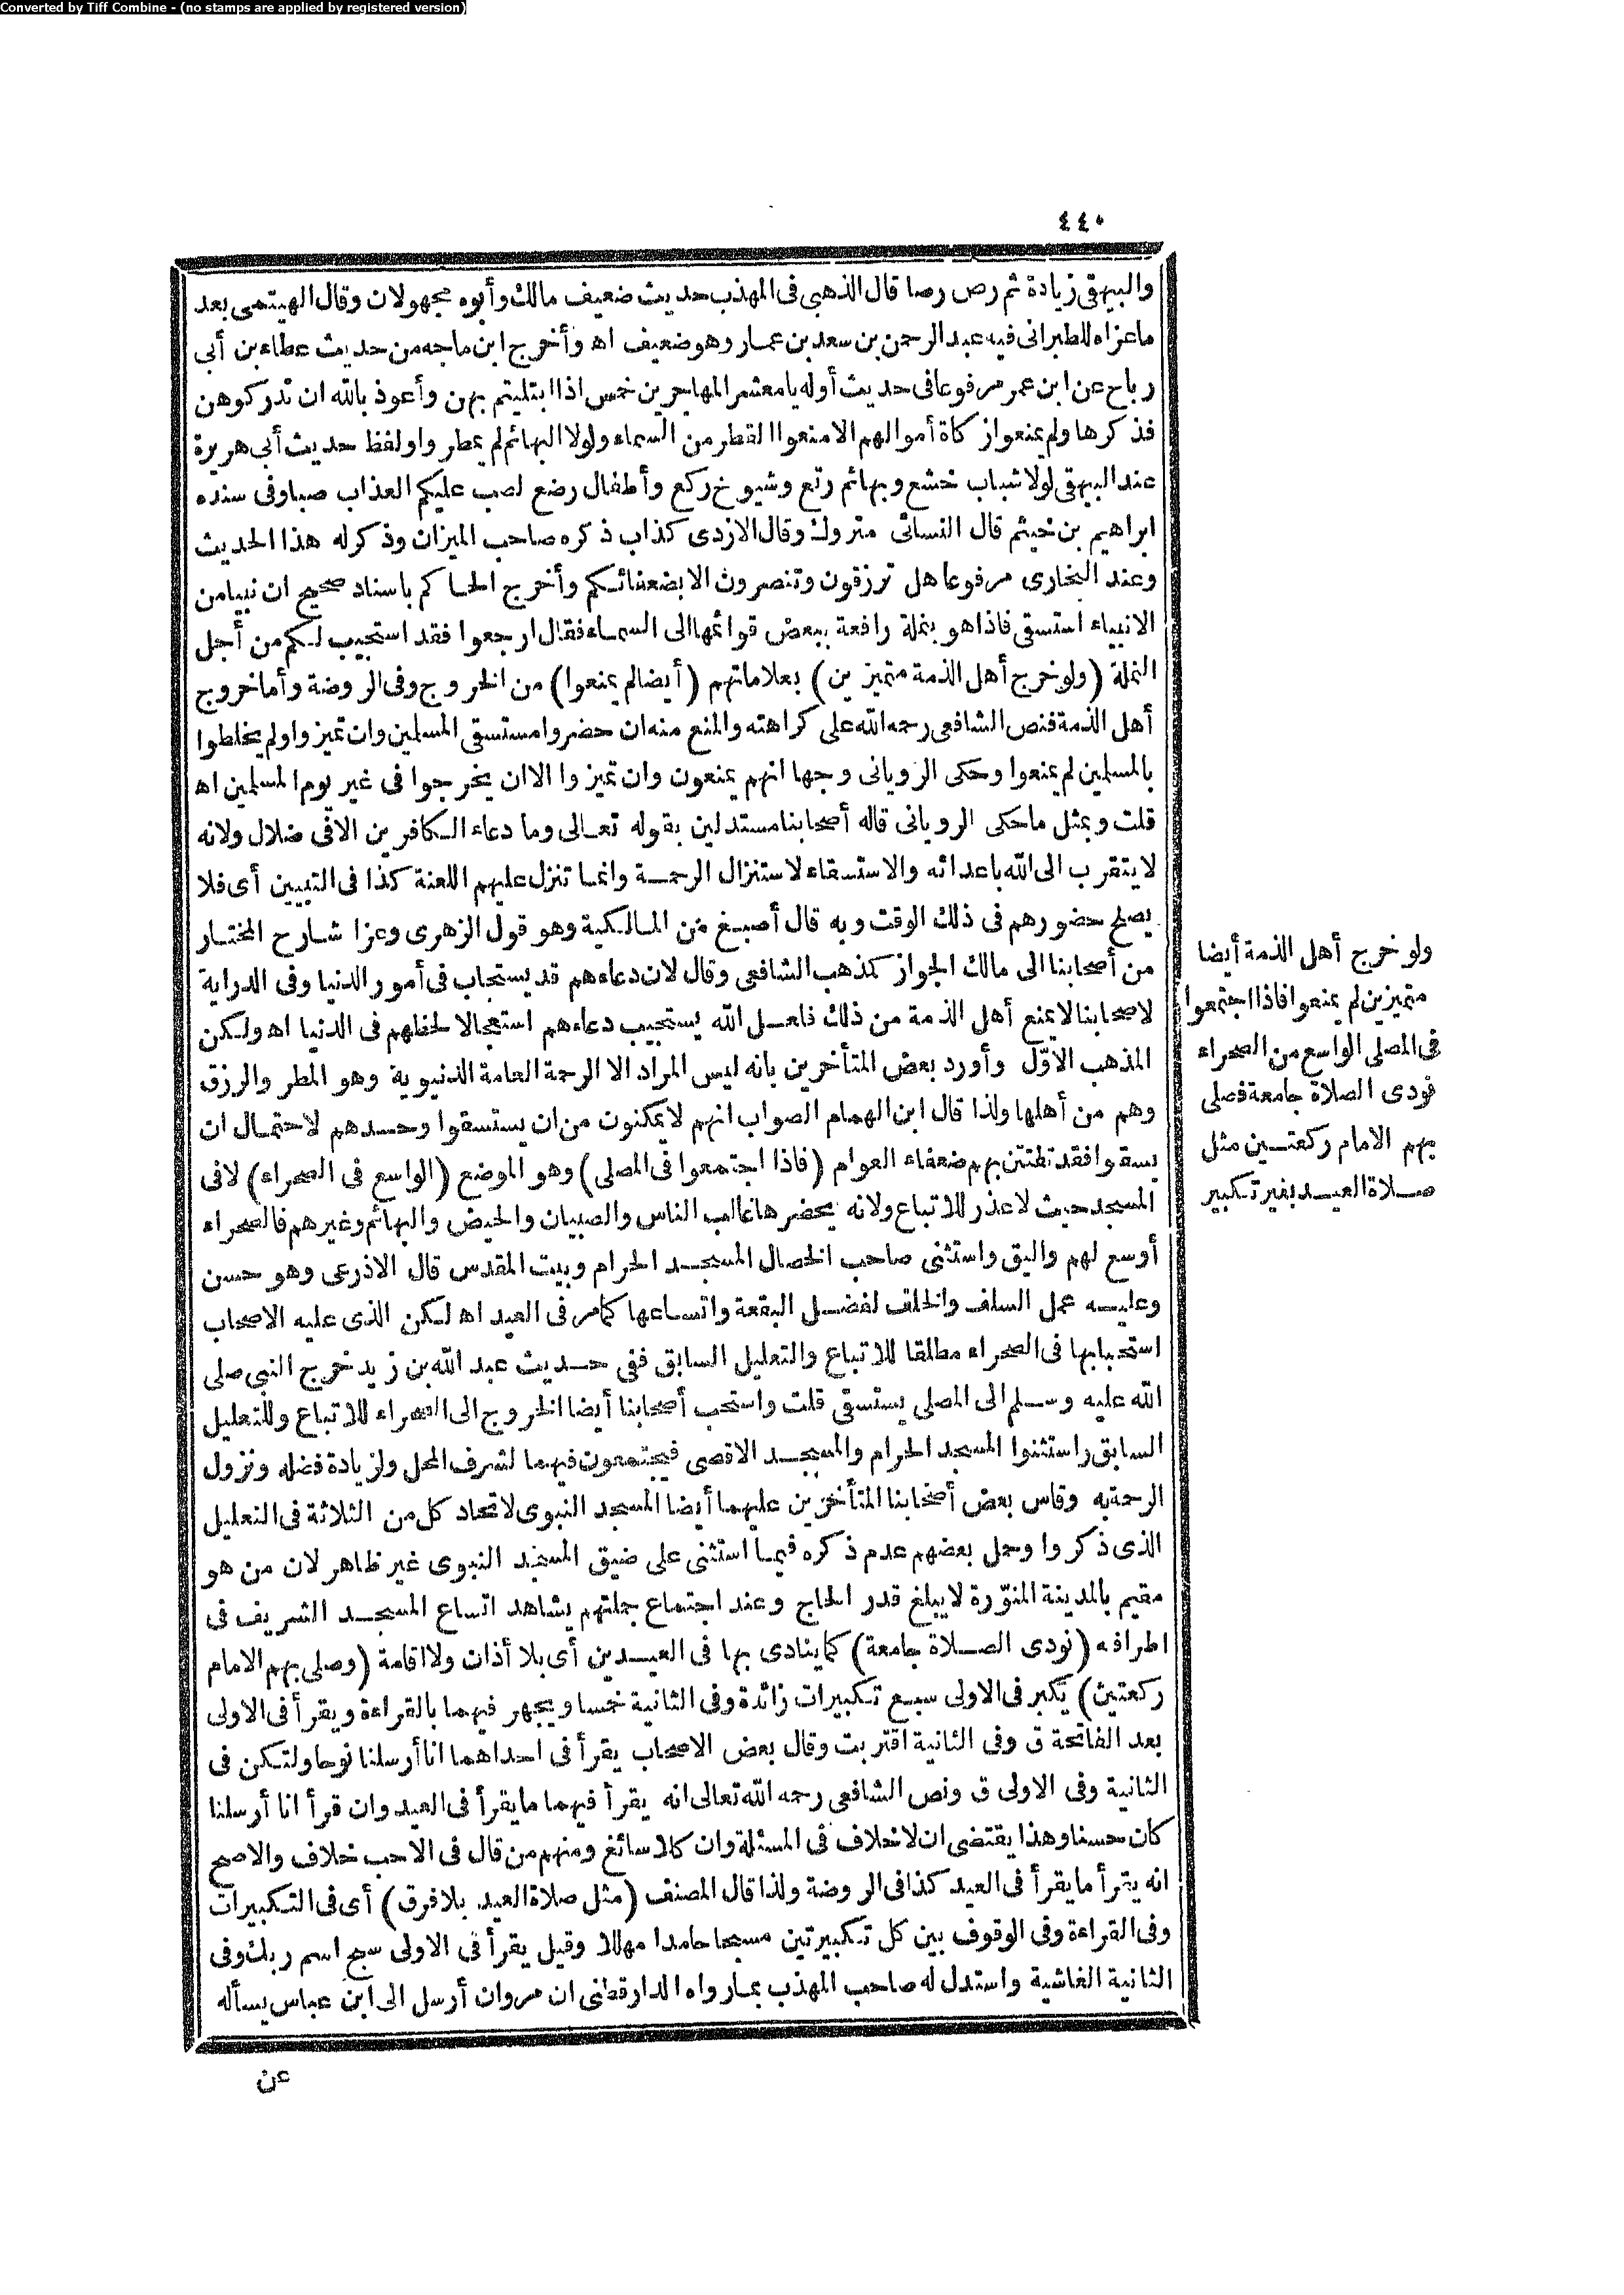 Converted by Tiff Combine - (no stamps are applied by registered version)
٤٤٠
والبيهقي زيادة ثم رص رصا قال الذهبي في المهذب حديث ضعيف مالك وأبوه مجهولان وقال الهيتمي بعد
ما عزاه للطبراني فيه عبد الرحمن بن سعد بن عمار وهو ضعيف اه وأخرج ابن ماجه من حديث عطاء بن أبي
رباح عن ابن عمر مرفوعا في حديث أوله يا معشر المهاجرين خمس اذا ابتليتم بهن وأعوذ بالله ان تدركوهن
فذكرها ولم يمنعوا زكاة أموالهم الا منعوا القطر من السماء ولولا البهائم لم يمطروا ولفظ حديث أبي هريرة
عند البيهقي لولا شباب خشع وبهائم رتع وشيوخ ركع وأطفال رضع لصب عليكم العذاب صبا وفي سنده
ابراهيم بن خيثم قال النسائي متروك وقال الازدي كذاب ذكره صاحب الميزان وذكر له هذا الحديث
وعند البخاري مرفوعا هل ترزقون وتنصرون الا بضعفائكم وأخرج الحاكم باسناد صحيح ان نبيا من
الانبياء استسقى فاذا هو بنملة رافعة ببعض قوائمها الى السماء فقال ارجعوا فقد استجيب لكم من أجل
النملة (ولو خرج أهل الذمة متميزين) بعلاماتهم (أيضا لم يمنعوا) من الخروج وفي الروضة وأما خروج
أهل الذمة فنص الشافعي رحمه الله على كراهته والمنع منه ان حضروا مستسقى المسلمين وان تميزوا ولم يخلطوا
بالمسلمين لم يمنعوا وحكى الروياني وجها انهم يمنعون وان تميزوا الا ان يخرجوا في غير يوم المسلمين اه
قلت وبمثل ما حكى الروياني قاله أصحابنا مستدلين بقوله تعالى وما دعاء الكافرين الا في ضلال ولانه
لا يتقرب الى الله باعدائه والاستسقاء لاستنزال الرحمة وانما تنزل عليهم اللعنة كذا في التبيين أي فلا
يصلح حضورهم في ذلك الوقت وبه قال أصبغ من المالكية وهو قول الزهري وعزا شارح المختار
من أصحابنا الى مالك الجواز كمذهب الشافعي وقال لان دعاءهم قد يستجاب في أمور الدنيا وفي الدراية
لاصحابنا لا يمنع أهل الذمة من ذلك فلعل الله يستجيب دعاءهم استعجالا لحظهم في الدنيا اه ولكن
المذهب الاول وأورد بعض المتأخرين بانه ليس المراد الا الرحمة العامة الدنيوية وهو المطر والرزق
وهم من أهلها ولذا قال ابن الهمام الصواب انهم لا يمكنون من ان يستسقوا وحدهم لاحتمال ان
يسقوا فقد تفتتن بهم ضعفاء العوام (فاذا اجتمعوا في المصلى) وهو الموضع (الواسع في الصحراء) لا في
المسجد حيث لا عذر للاتباع ولانه يحضرها غالب الناس والصبيان والحيض والبهائم وغيرهم فالصحراء
أوسع لهم واليق واستثنى صاحب الخصال المسجد الحرام وبيت المقدس قال الاذرعي وهو حسن
وعليه عمل السلف والخلف لفضل البقعة واتساعها كما مر في العيد اه لكن الذي عليه الاصحاب
استحبابها في الصحراء مطلقا للاتباع والتعليل السابق ففي حديث عبد الله بن زيد خرج النبي صلى
الله عليه وسلم الى المصلى يستسقى قلت واستحب أصحابنا أيضا الخروج الى الصحراء للاتباع وللتعليل
السابق واستثنوا المسجد الحرام والمسجد الاقصى فيجتمعون فيهما لشرف المحل ولزيادة فضله ونزول
الرحمة به وقاس بعض أصحابنا المتأخرين عليهما أيضا المسجد النبوي لاتحاد كل من الثلاثة في التعليل
الذي ذكروا وحمل بعضهم عدم ذكره فيما استثنى على ضيق المسجد النبوي غير ظاهر لان من هو
مقيم بالمدينة المنوّرة لا يبلغ قدر الحاج وعند اجتماع جملتهم يشاهد اتساع المسجد الشريف في
اطرافه (نودى الصلاة جامعة) كما ينادى بها في العيدين أي بلا أذان ولا اقامة (وصلى بهم الامام
ركعتين) يكبر في الاولى سبع تكبيرات زائدة وفي الثانية خمسا ويجهر فيهما بالقراءة ويقرأ في الاولى
بعد الفاتحة ق وفي الثانية اقتربت وقال بعض الاصحاب يقرأ في احداهما انا أرسلنا نوحا ولتكن في
الثانية وفي الاولى ق ونص الشافعي رحمه الله تعالى انه يقرأ فيهما ما يقرأ في العيد وان قرأ انا أرسلنا
كان حسنا وهذا يقتضي ان لا خلاف في المسئلة وان كلا سائغ ومنهم من قال في الاحب خلاف والاصح
انه يقرأ ما يقرأ في العيد كذا في الروضة ولذا قال المصنف (مثل صلاة العيد بلا فرق) أي في التكبيرات
وفي القراءة وفي الوقوف بين كل تكبيرتين مسبحا حامدا مهللا وقيل يقرأ في الاولى سبح اسم ربك وفي
الثانية الغاشية واستدل له صاحب المهذب بما رواه الدارقطني ان مروان أرسل الى ابن عباس يسأله
عن
ولو خرج أهل الذمة أيضا
متميزين لم يمنعوا فاذا اجتمعوا
في المصلى الواسع من الصحراء
نودى الصلاة جامعة فصلى
بهم الامام ركعتين مثل
صلاة العيد بغير تكبير